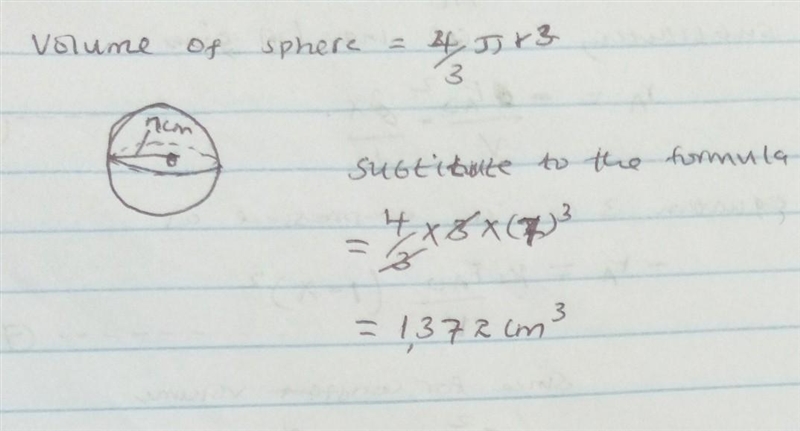 Volume of sphere = 4/3 π r3
7cm
Substitute to the formula
= 4/3 × 3 × (7)^3
= 1,372 cm^3